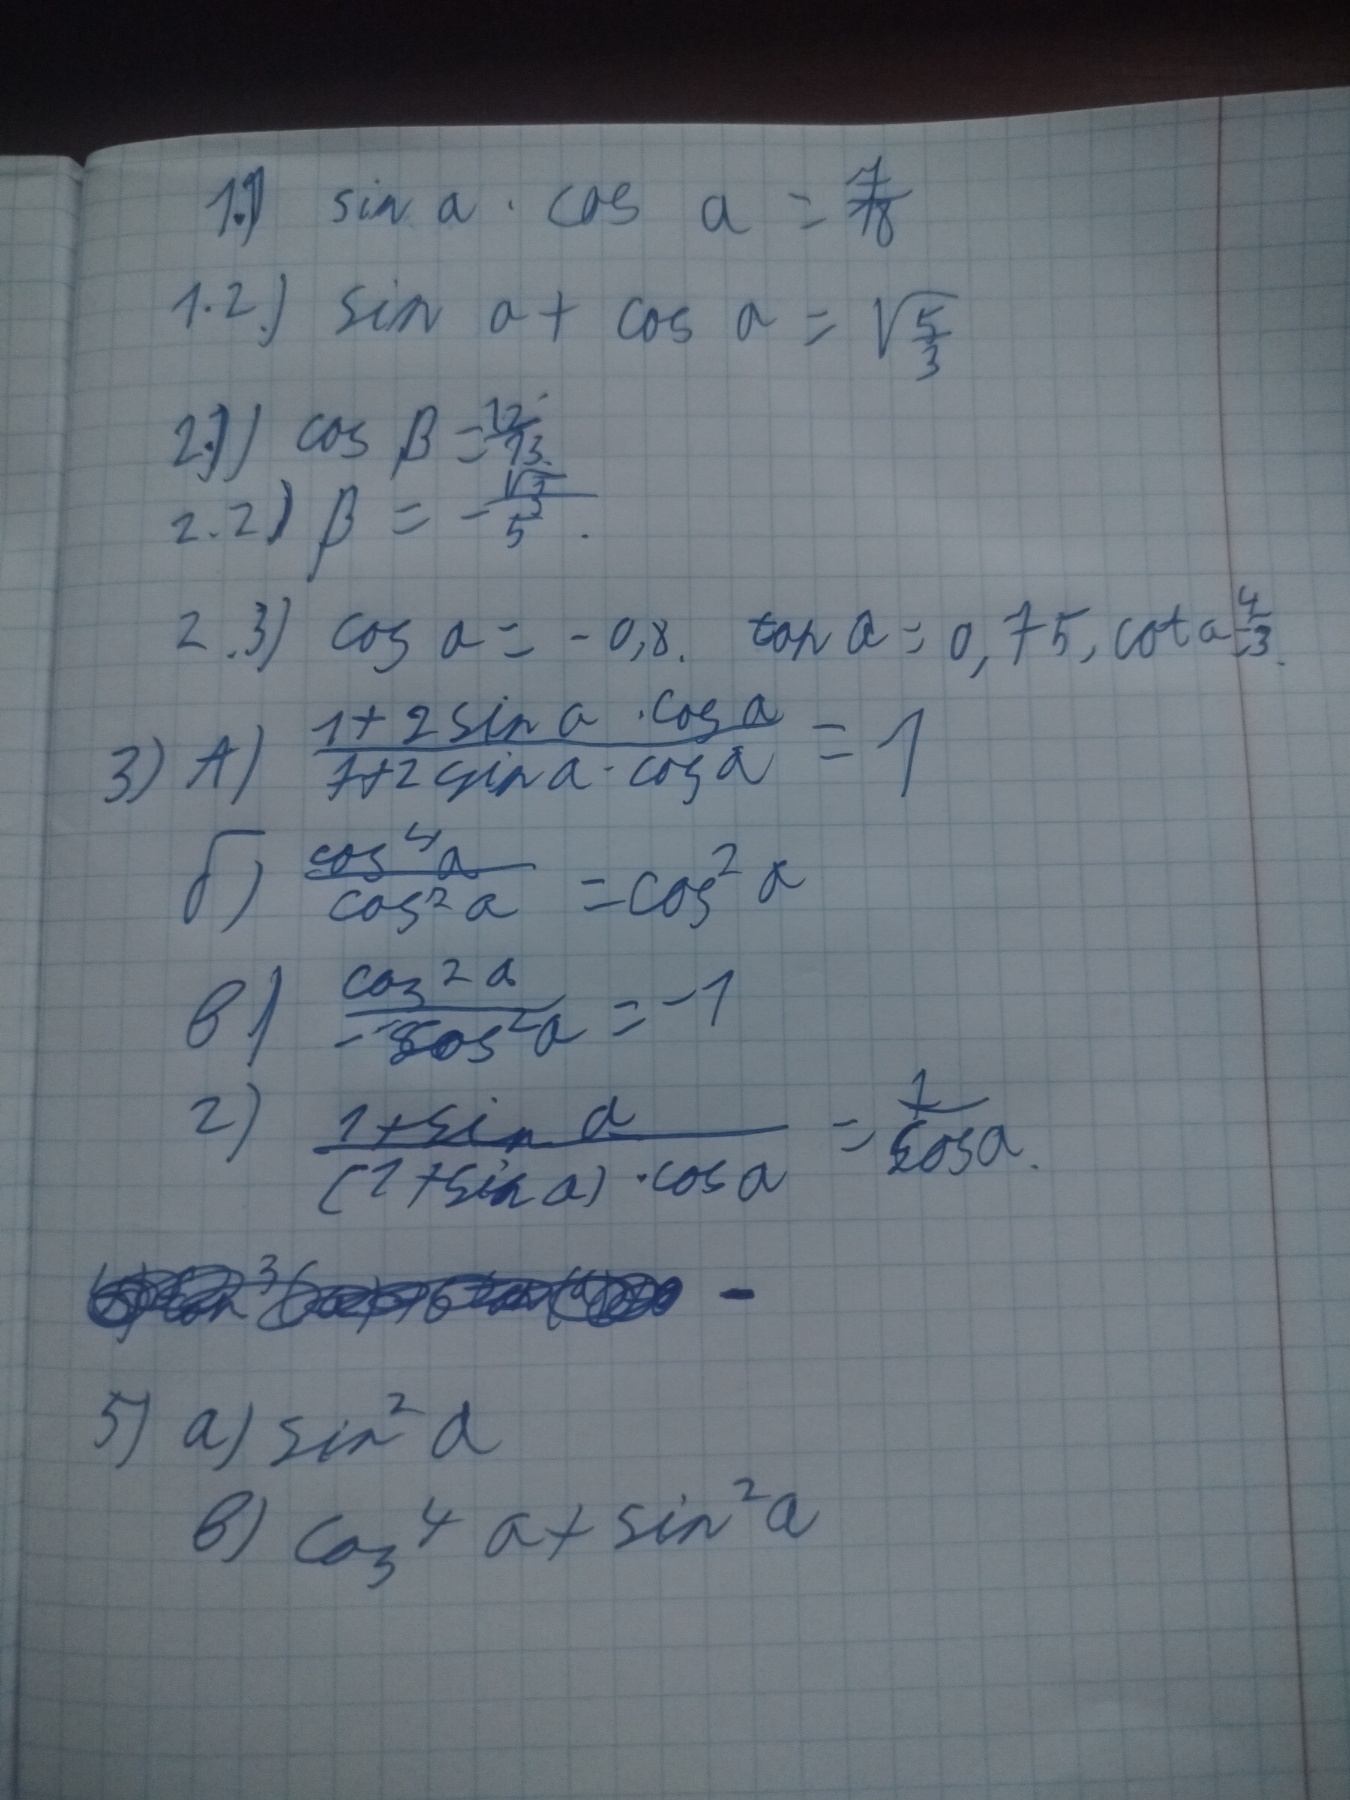 1.1) sin a · cos a = 7/18
1.2.) sin a + cos a = √5/3
2.1) cos β = 12/13.
2.2) β = - √3/5.
2.3) cos a = - 0,8. tan a = 0,75, cot a = 4/3.
3) А) 1 + 2 sin a · cos a / 1 + 2 sin a · cos a = 1
б) cos⁴ a / cos² a = cos² a
в) cos² a / - cos² a = - 1
г) 1 + sin a / (1 + sin a) · cos a = 1 / cos a.
5) а) sin² a
в) cos⁴ a + sin² a